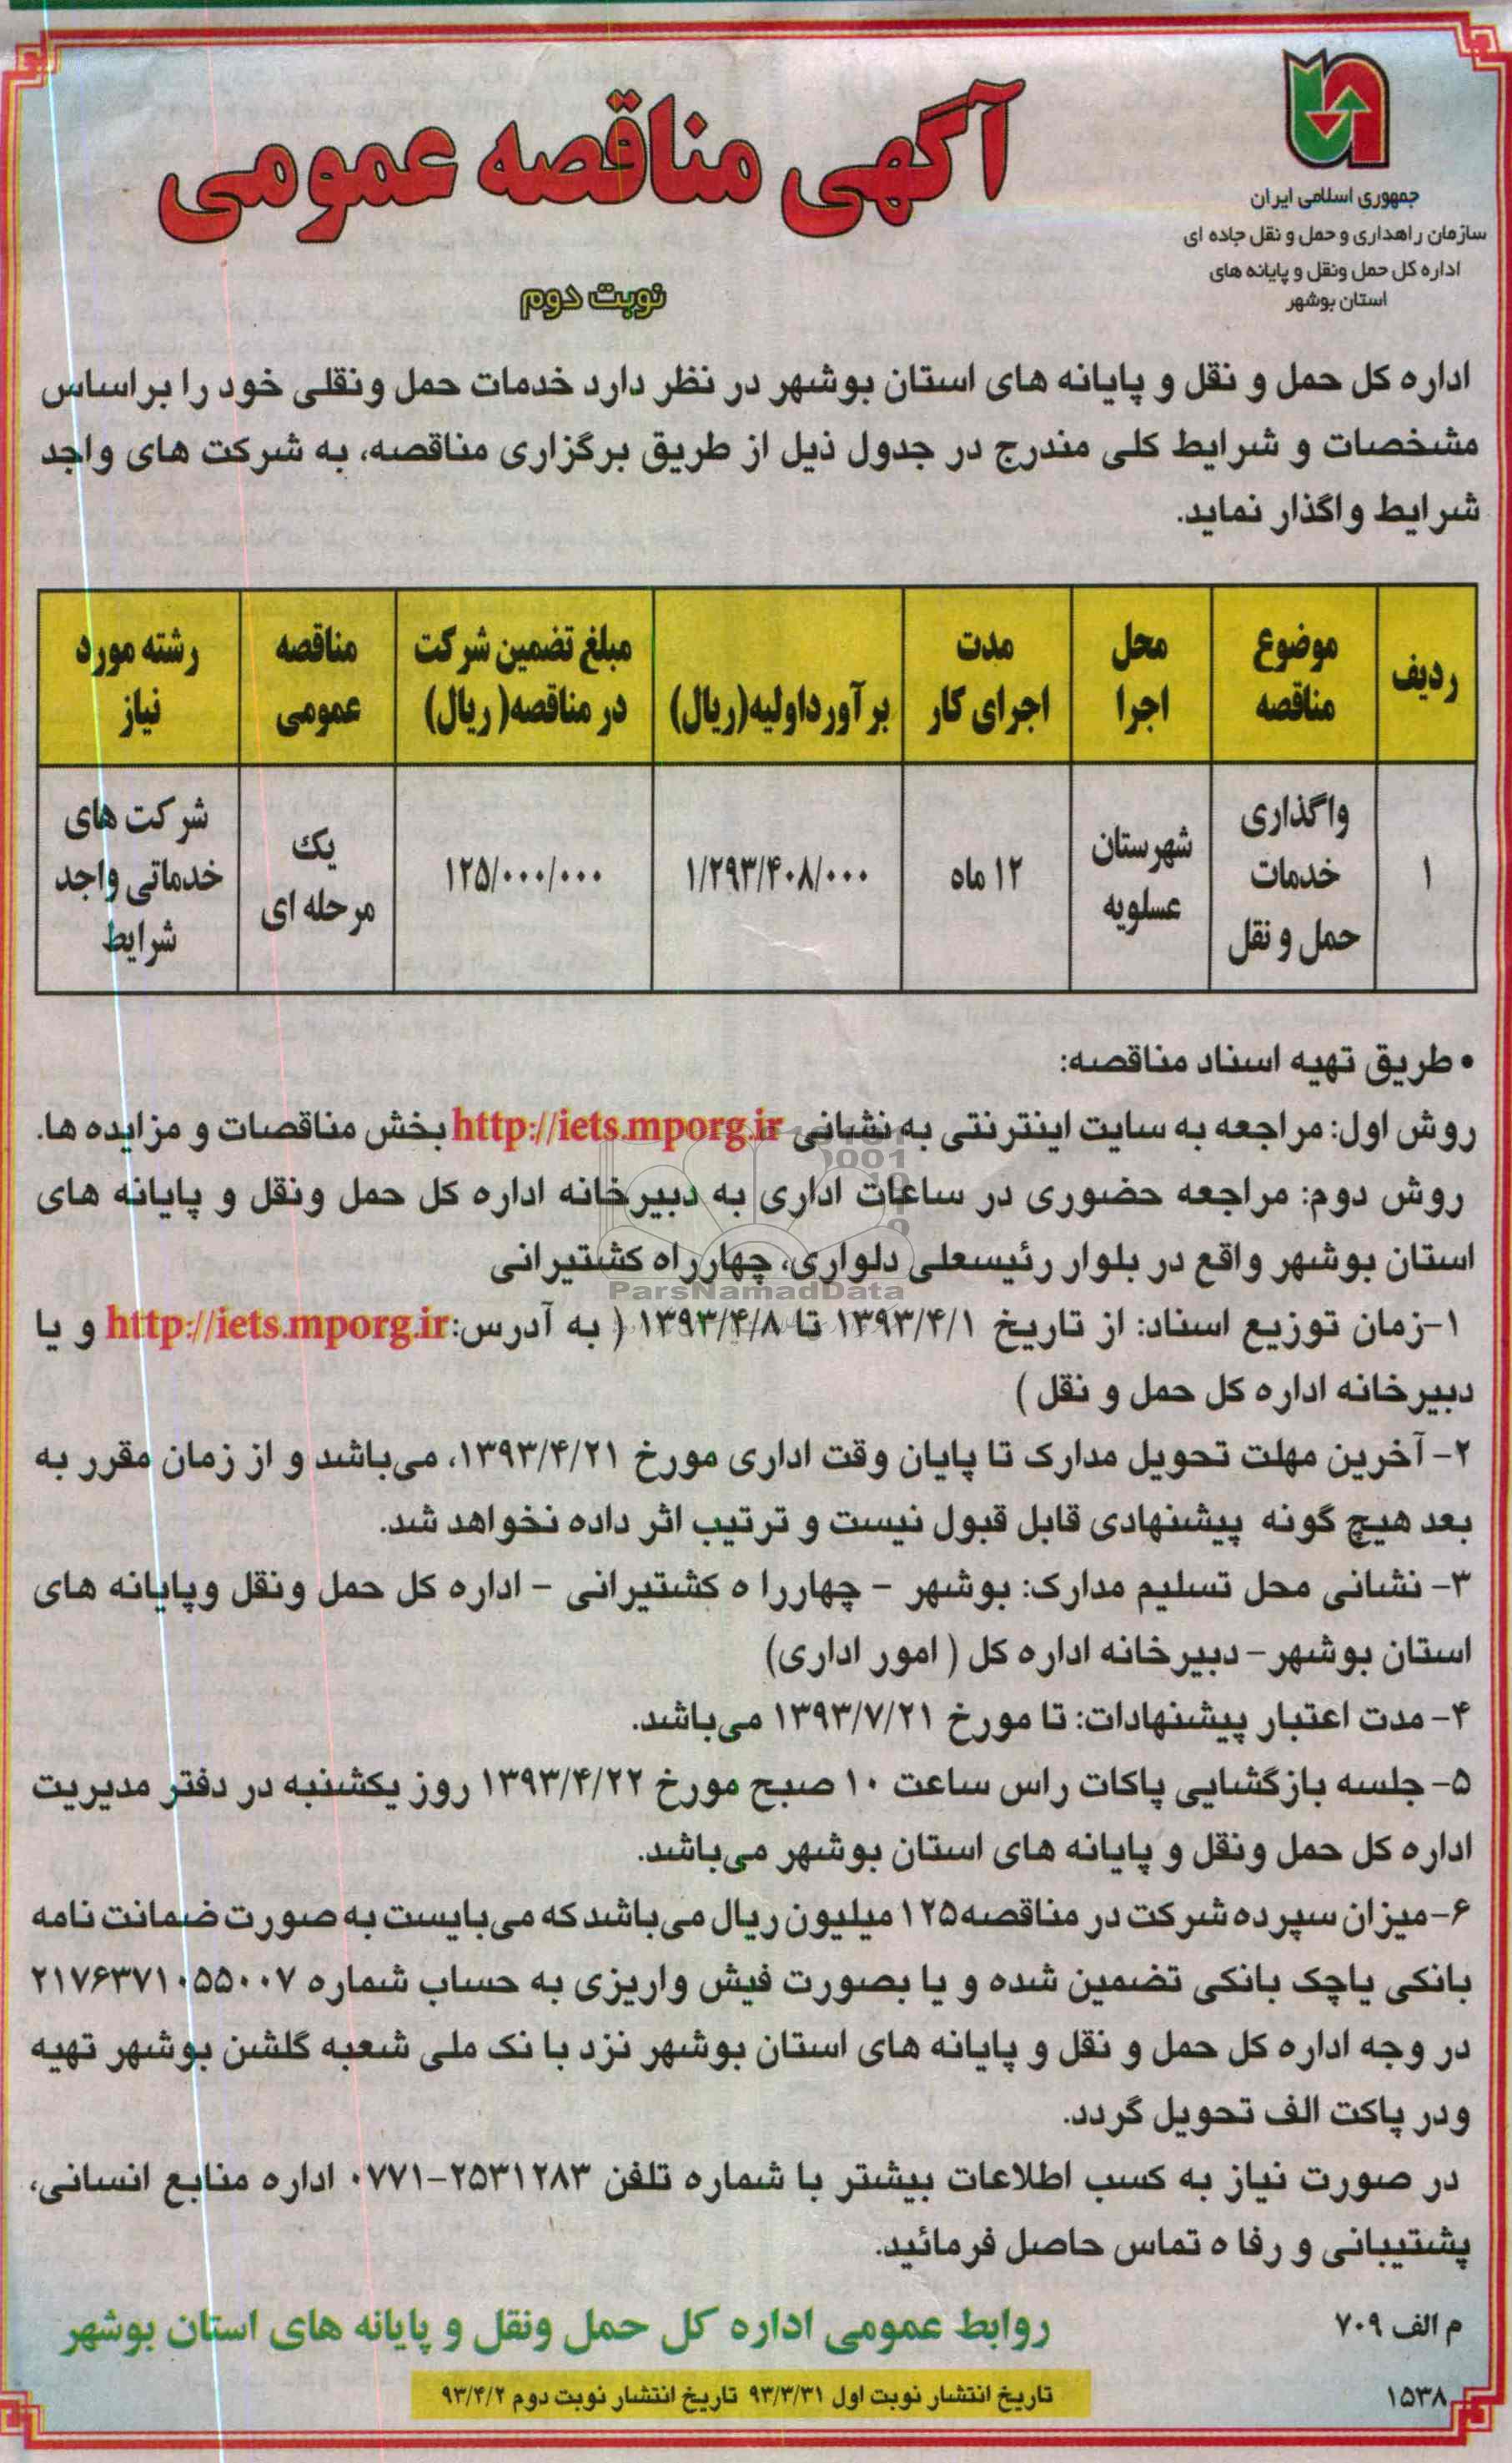 جمهوری اسلامی ایران
سازمان راهداری و حمل و نقل جاده ای
اداره کل حمل ونقل و پایانه های
استان بوشهر
آگهی مناقصه عمومی
نوبت دوم
اداره کل حمل و نقل و پایانه های استان بوشهر در نظر دارد خدمات حمل ونقلی خود را براساس
مشخصات و شرایط کلی مندرج در جدول ذیل از طریق برگزاری مناقصه، به شرکت های واجد
شرایط واگذار نماید.
ردیف | موضوع مناقصه | محل اجرا | مدت اجرای کار | برآورداولیه(ریال) | مبلغ تضمین شرکت در مناقصه( ریال) | مناقصه عمومی | رشته مورد نیاز
۱ | واگذاری خدمات حمل و نقل | شهرستان عسلویه | ۱۲ ماه | ۱/۲۹۳/۴۰۸/۰۰۰ | ۱۲۵/۰۰۰/۰۰۰ | یک مرحله ای | شرکت های خدماتی واجد شرایط
• طریق تهیه اسناد مناقصه:
روش اول: مراجعه به سایت اینترنتی به نشانی http://iets.mporg.ir بخش مناقصات و مزایده ها.
روش دوم: مراجعه حضوری در ساعات اداری به دبیرخانه اداره کل حمل ونقل و پایانه های
استان بوشهر واقع در بلوار رئیسعلی دلواری، چهارراه کشتیرانی
ParsNamadData
۱-زمان توزیع اسناد: از تاریخ ۱۳۹۳/۴/۱ تا ۱۳۹۳/۴/۸ ( به آدرس:http://iets.mporg.ir و یا
دبیرخانه اداره کل حمل و نقل )
۲- آخرین مهلت تحویل مدارک تا پایان وقت اداری مورخ ۱۳۹۳/۴/۲۱، می‌باشد و از زمان مقرر به
بعد هیچ گونه پیشنهادی قابل قبول نیست و ترتیب اثر داده نخواهد شد.
۳- نشانی محل تسلیم مدارک: بوشهر - چهاررا ه کشتیرانی - اداره کل حمل ونقل وپایانه های
استان بوشهر- دبیرخانه اداره کل ( امور اداری)
۴- مدت اعتبار پیشنهادات: تا مورخ ۱۳۹۳/۷/۲۱ می‌باشد.
۵- جلسه بازگشایی پاکات راس ساعت ۱۰ صبح مورخ ۱۳۹۳/۴/۲۲ روز یکشنبه در دفتر مدیریت
اداره کل حمل ونقل و پایانه های استان بوشهر می‌باشد.
۶-میزان سپرده شرکت در مناقصه۱۲۵ میلیون ریال می‌باشد که می‌بایست به صورت ضمانت نامه
بانکی یاچک بانکی تضمین شده و یا بصورت فیش واریزی به حساب شماره ۲۱۷۶۳۷۱۰۵۵۰۰۷
در وجه اداره کل حمل و نقل و پایانه های استان بوشهر نزد بانک ملی شعبه گلشن بوشهر تهیه
ودر پاکت الف تحویل گردد.
در صورت نیاز به کسب اطلاعات بیشتر با شماره تلفن ۲۵۳۱۲۸۳-۰۷۷۱ اداره منابع انسانی،
پشتیبانی و رفا ه تماس حاصل فرمائید.
م الف ۷۰۹
روابط عمومی اداره کل حمل ونقل و پایانه های استان بوشهر
تاریخ انتشار نوبت اول ۹۳/۳/۳۱ تاریخ انتشار نوبت دوم ۹۳/۴/۲
۱۵۳۸